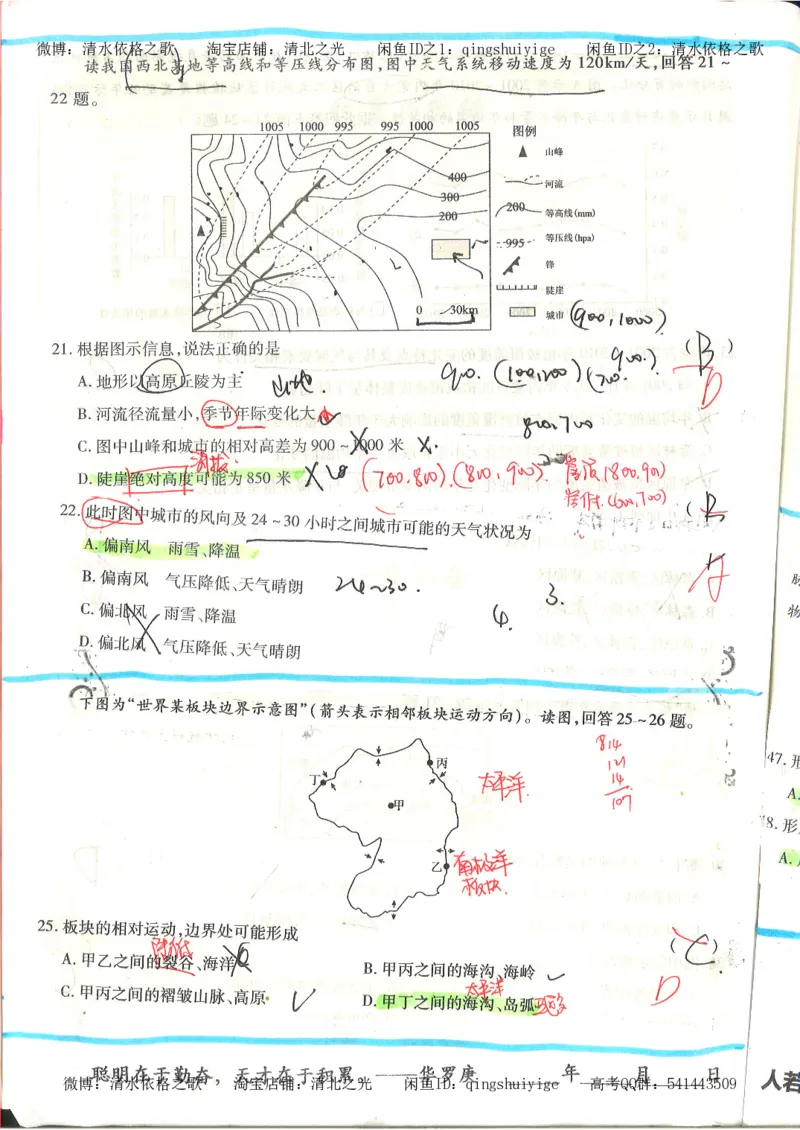 微博：清水依格之歌 淘宝店铺：清北之光 闲鱼ID之1：qingshuiyige 闲鱼ID之2：清水依格之歌
读我国西北某地等高线和等压线分布图，图中天气系统移动速度为 120km/天，回答 21～
22 题。
1005 1000 995 995 1000 1005
图例
山峰
400
河流
300
200
200 等高线(mm)
995 等压线(hpa)
锋
陡崖
0 30km
城市
(900,1000)
21. 根据图示信息，说法正确的是
(B)
D
A. 地形以高原丘陵为主
山地.
900.
B. 河流径流量小，季节年际变化大
800,700
C. 图中山峰和城市的相对高差为 900～1000 米
D. 陡崖绝对高度可能为 850 米
海拔
(700,800).(800,900)
崖顶(800,900)
(600,700)
22. 此时图中城市的风向及 24～30 小时之间城市可能的天气状况为
(B)
A
A. 偏南风 雨雪、降温
B. 偏南风 气压降低、天气晴朗
24~30.
3.
C. 偏北风 雨雪、降温
D. 偏北风 气压降低、天气晴朗
下图为“世界某板块边界示意图”(箭头表示相邻板块运动方向)。读图，回答 25～26 题。
814
121
14
107
丙
丁
太平洋
甲
乙
南极洋
板块.
47. 形
A.
8. 形
A.
25. 板块的相对运动，边界处可能形成
(C)
D
A. 甲乙之间的裂谷、海洋
B. 甲丙之间的海沟、海岭
C. 甲丙之间的褶皱山脉、高原
太平洋
D. 甲丁之间的海沟、岛弧
聪明在于勤奋，天才在于积累 ——华罗庚 年 月 日
微博：清水依格之歌 淘宝店铺：清北之光 闲鱼ID：qingshuiyige 高考QQ群：541443509
人若